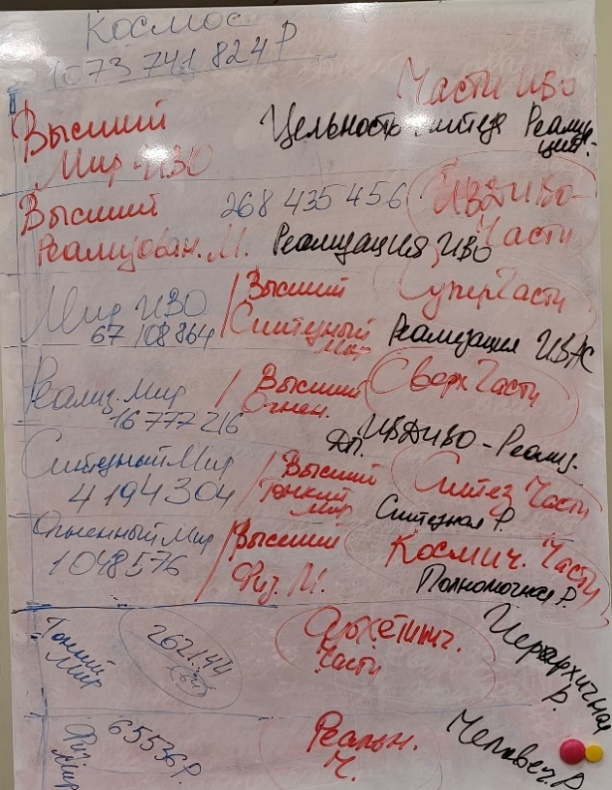 Космос
1073 741 824 Р
Части ИВО
Высший Мир ИВО
Цельность Синтез Реализ-
ция.
268 435 456
ИВДИВО-
Части
Высший
Реализован. М.
Реализация ИВО
Мир ИВО
67 108 864
/ Высший
Синтезный
Мир
СуперЧасти
Реализация ИВАС
Реализ. Мир
16 777 216
/ Высший
Огнен.
СверхЧасти
ИВДИВО - Реализ.
Синтезный Мир
4 194 304
/ Высший
Тонкий
Мир
Синтез Части
Синтезная Р.
Огненный Мир
1048 576
/ Высший
Физ. М.
Космич. Части
Полномочная Р.
Тонкий
Мир
262144
Архетипич.
Части
Иерархичная
Р.
65536 Р.
Реальн.
Ч.
Человеч. Р